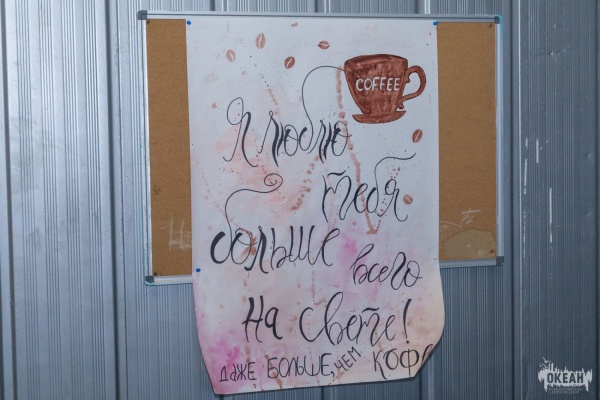 COFFEE
Я люблю
тебя
больше всего
на свете!
даже БОЛЬШЕ, чем КОФЕ
ОКЕАН